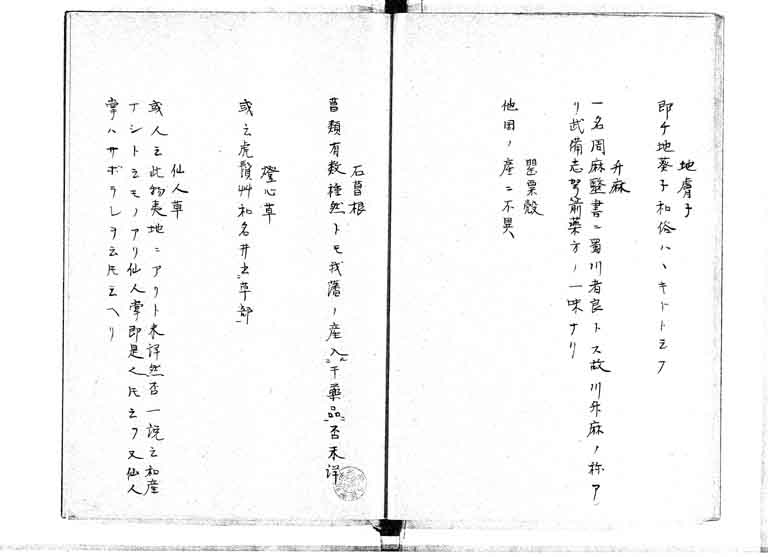 地膚子
即チ地葵子和俗ハヽキヾトモフ
升麻
一名周麻醫書ニ蜀川者良トス故川升麻ノ称ア
リ武備志弩箭藥方ノ一味ナリ
罌粟殼
他國ノ産ニ不異
石菖根
菖類有数種然トモ我藩ノ産入于藥品否未詳
燈心草
或云虎鬚艸和名井出草部
仙人草
或人云此物夷地ニアリト未詳然否一説云和産
ナシト云モノアリ仙人掌即是〱トモ云フ又仙人
掌ハサボラレヲ云トモ云ヘリ